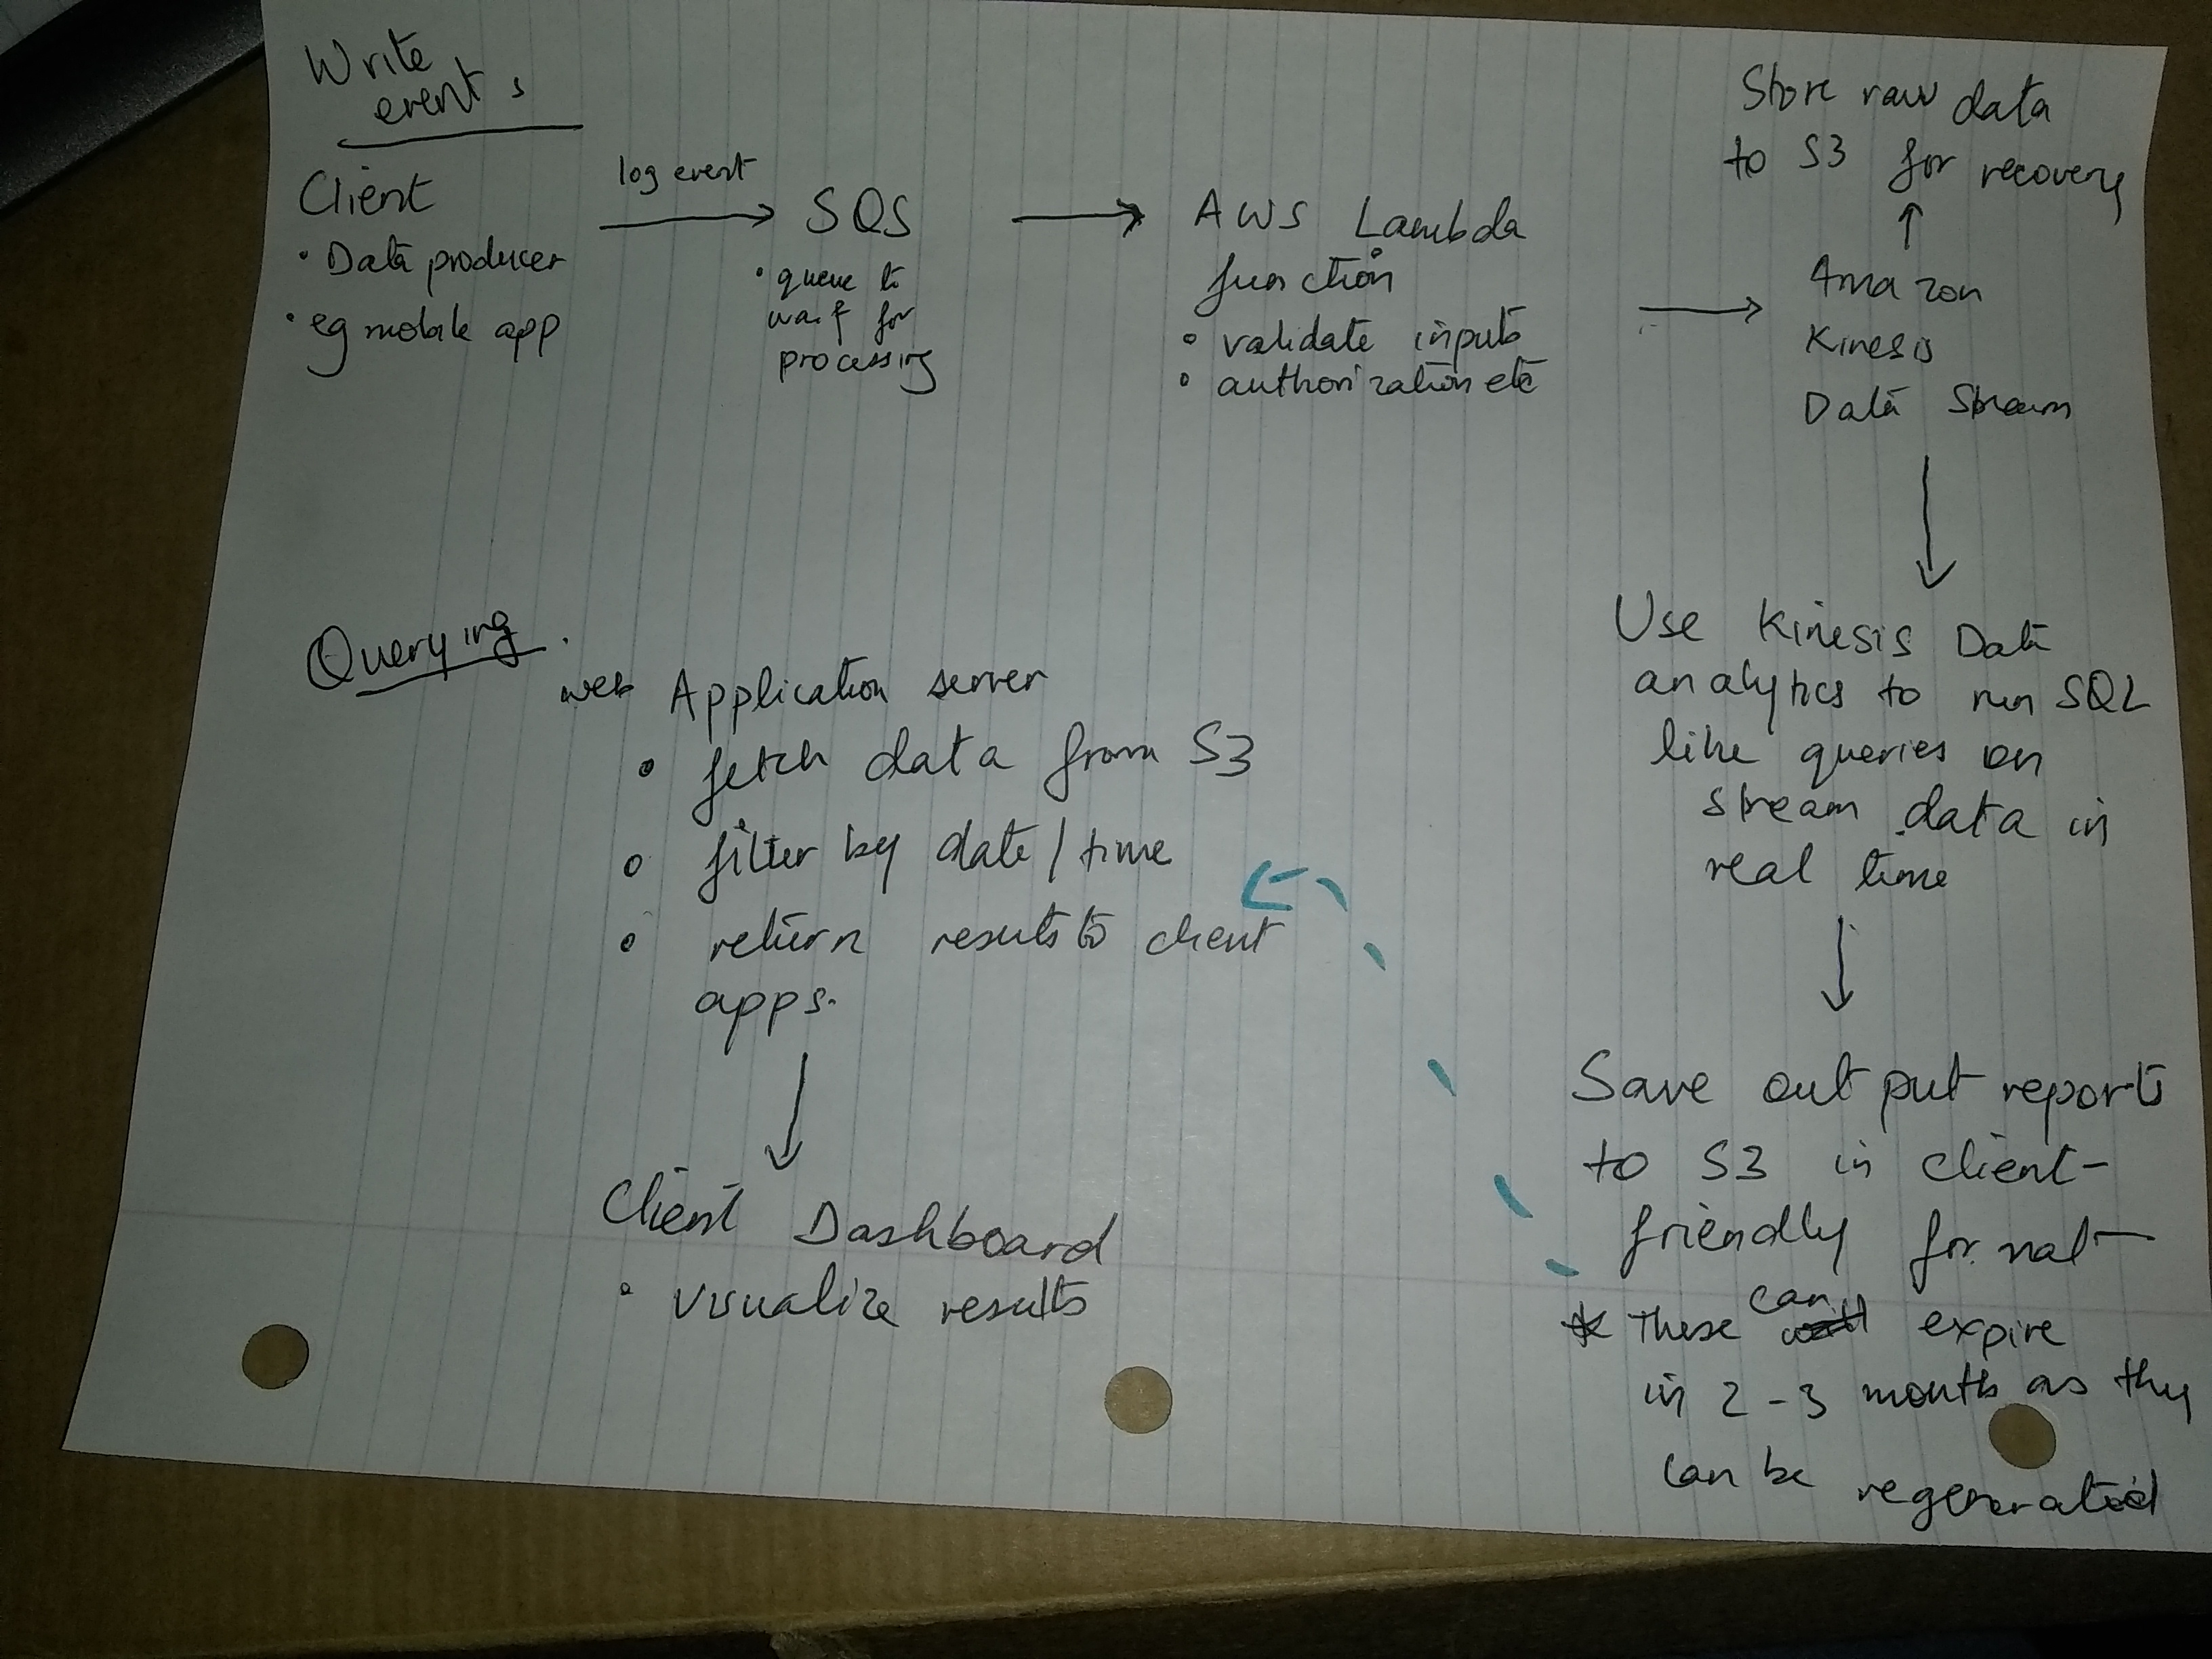 Write
events
Client
• Data producer
• eg mobile app
log event
SQS
• queue to
wait for
processing
AWS Lambda
function
• validate inputs
• authorization etc
Store raw data
to S3 for recovery
Amazon
Kinesis
Data Stream
Use Kinesis Data
analytics to run SQL
like queries on
stream data in
real time
Save output reports
to S3 in client-
friendly format
* These can expire
in 2-3 months as they
can be regenerated
Querying.
web Application server
• fetch data from S3
• filter by date/time
• return results to client
apps.
Client Dashboard
• visualize results